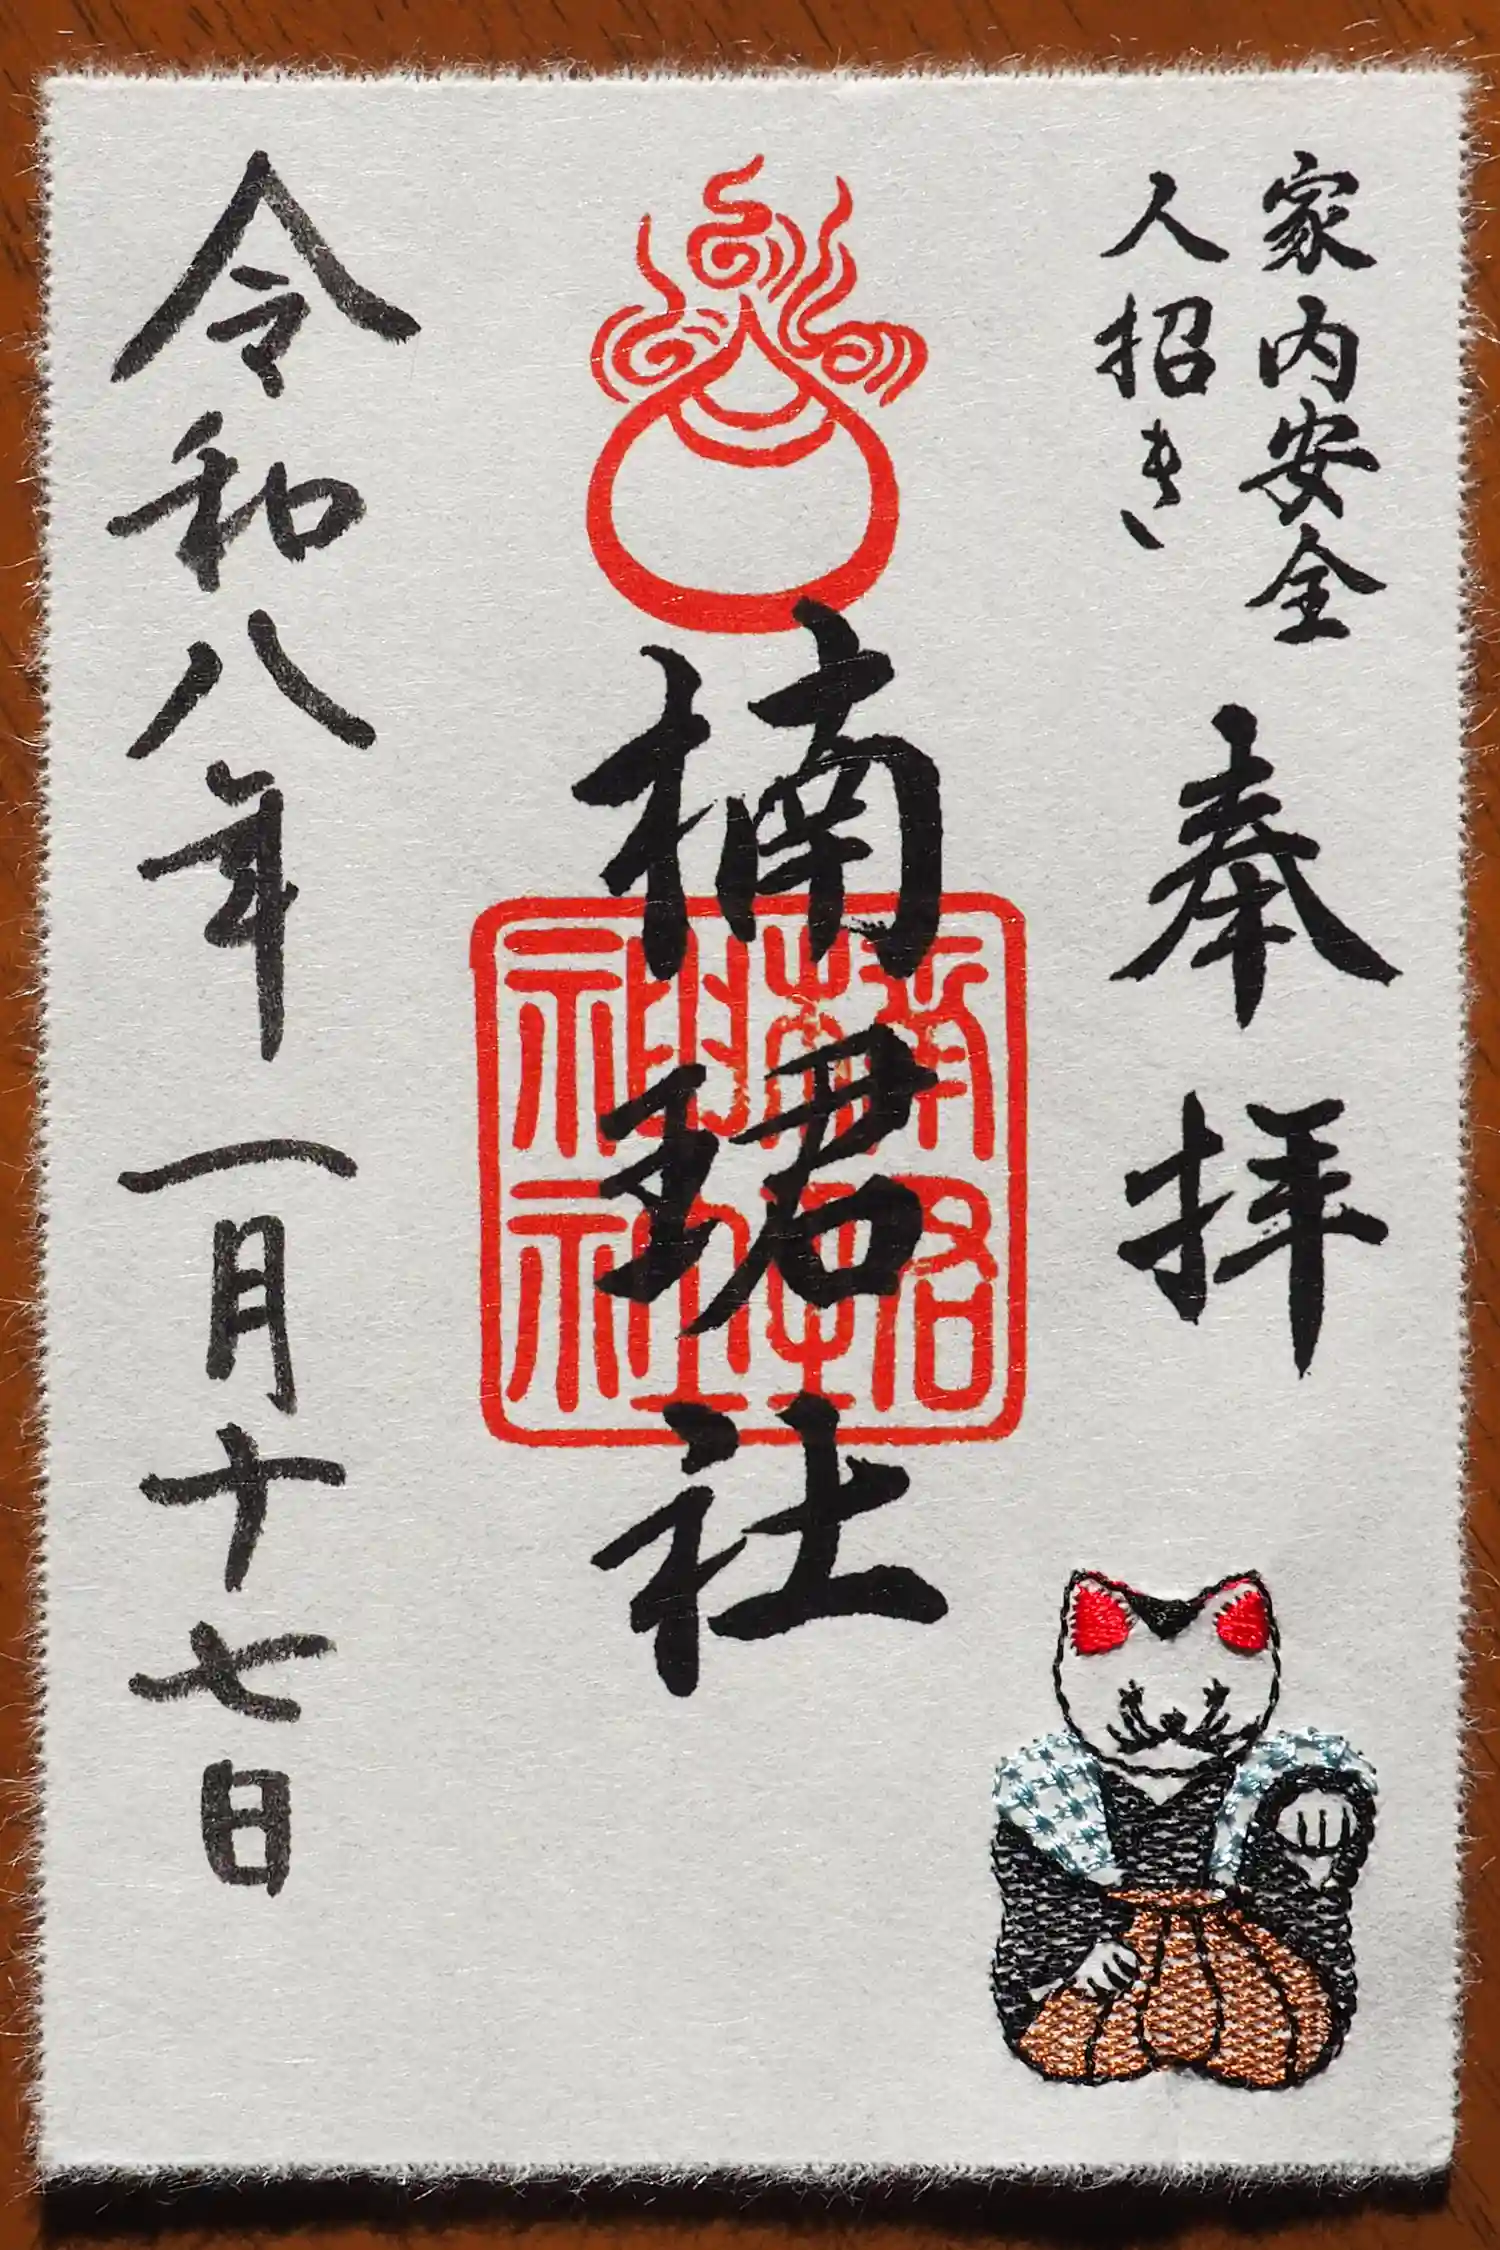 家内安全
人招き
奉拝
楠珺社
神社
令和八年一月十七日